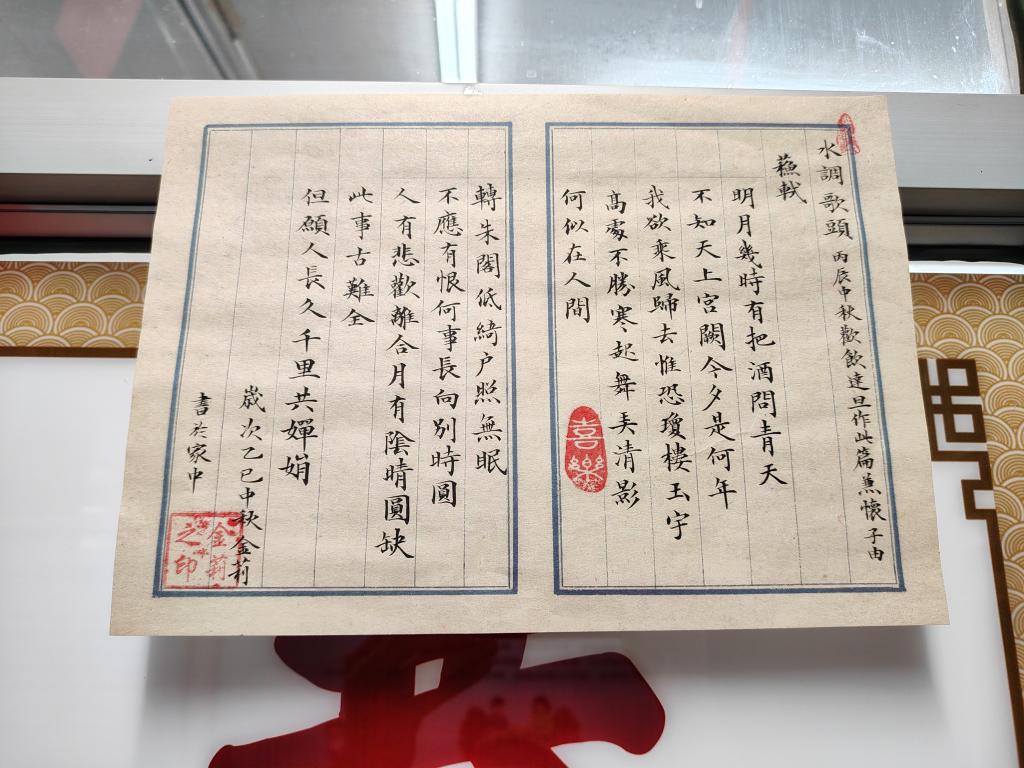 水調歌頭 丙辰中秋歡飲達旦作此篇蒸懷子由
蘓軾
明月幾時有把酒問青天
不知天上宮闕今夕是何年
我欲乘風歸去惟恐瓊樓玉宇
高處不勝寒起舞弄清影
何似在人間
喜樂
轉朱閣低綺户照無眠
不應有恨何事長向別時圓
人有悲歡離合月有陰晴圓缺
此事古難全
但願人長久千里共嬋娟
歲次乙巳中秋金莉
書於家中
金莉之印